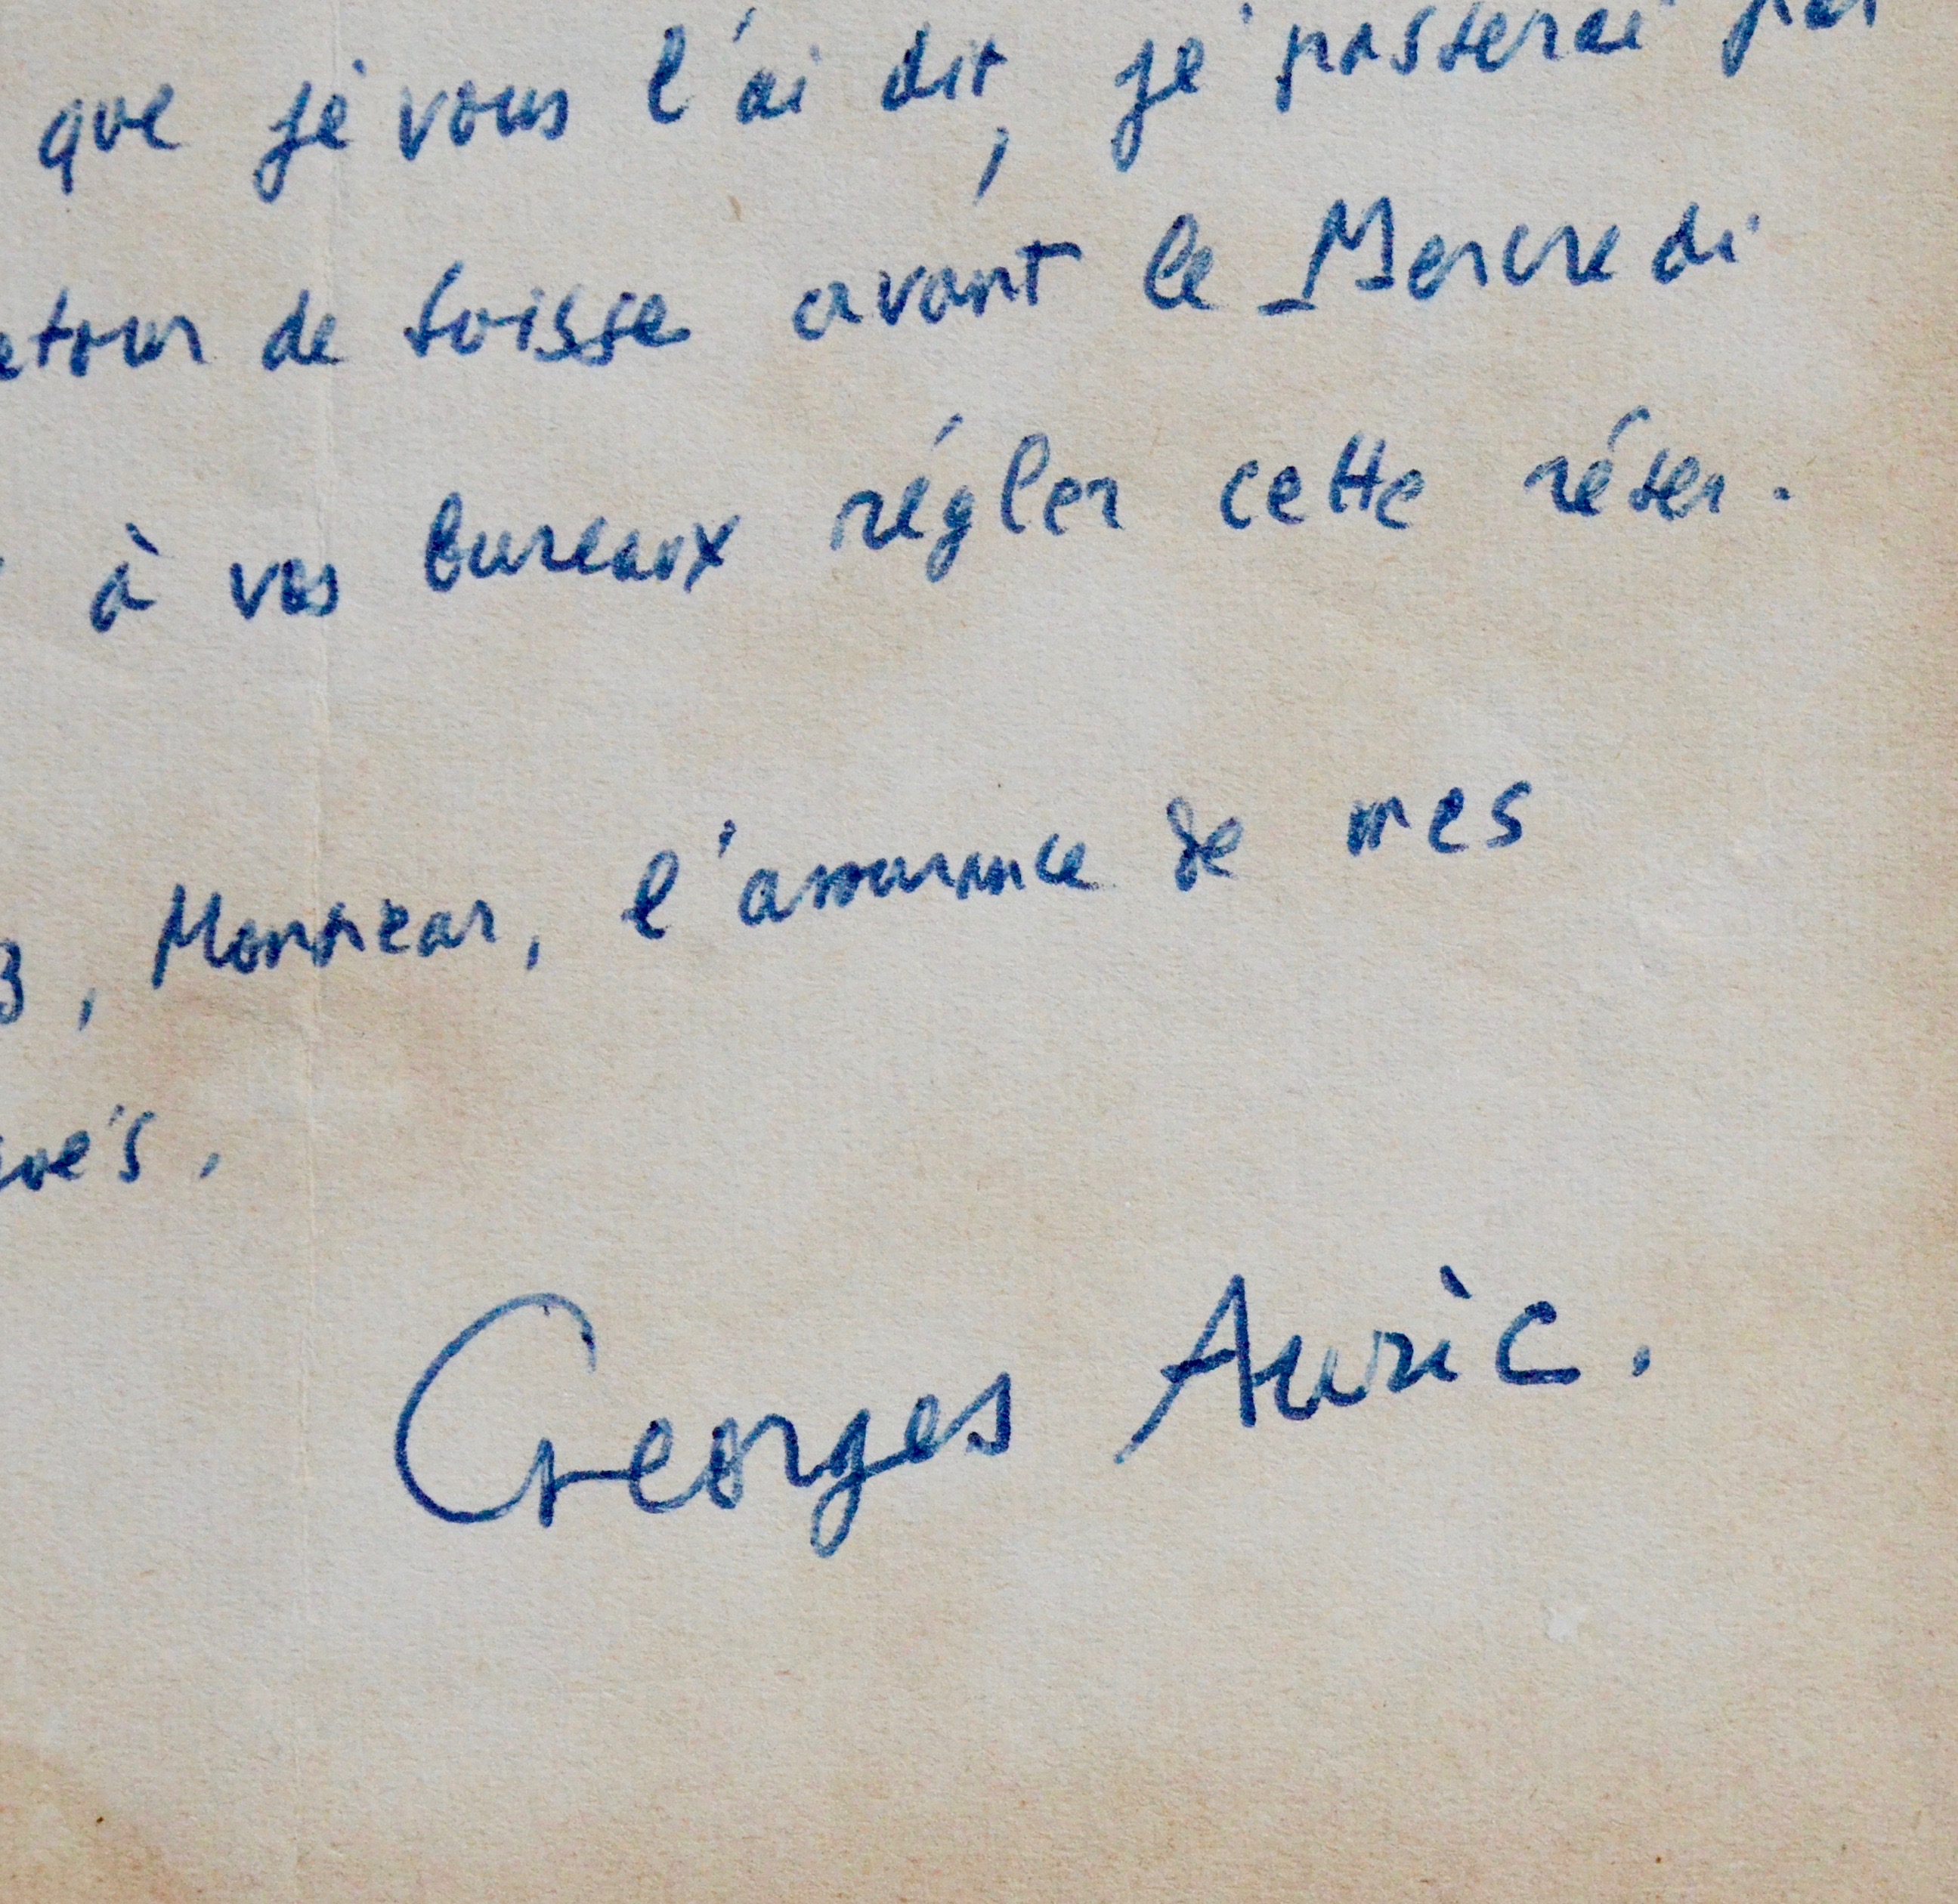 que je vous l'ai dit, je passerai par
etour de Suisse avant le Mercredi
à vos bureaux régler cette réser.
, Monsieur, l'assurance de mes
ués.
Georges Auric.